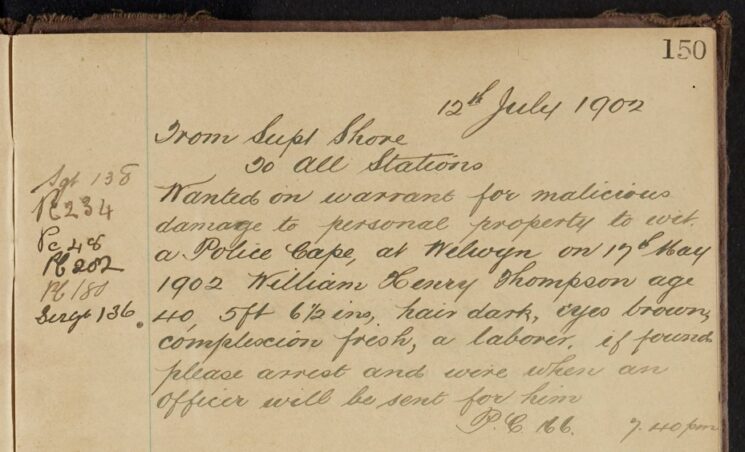 150
12th July 1902
From Supt Shore
To All Stations
Wanted on warrant for malicious
damage to personal property to wit.
a Police Cape, at Welwyn on 17th May
1902 William Henry Thompson age
40, 5ft 6½ ins, hair dark, eyes brown,
complexion fresh, a laborer. if found
please arrest and wire when an
officer will be sent for him
P.C. 66. 7.40pm
Sgt 138
PC 234
Pc 48
PC 202
PC 180
Sergt 136.